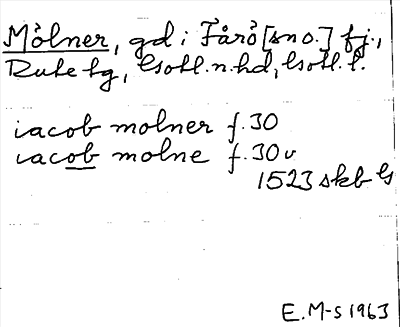 Mölner, gd i Fårö [sno.] fj.,
Rute tg, Gotl. n. hd, Gotl. l.
iacob molner f. 30
iacob molne f. 30 v
1523 skb G
E. M-s 1963